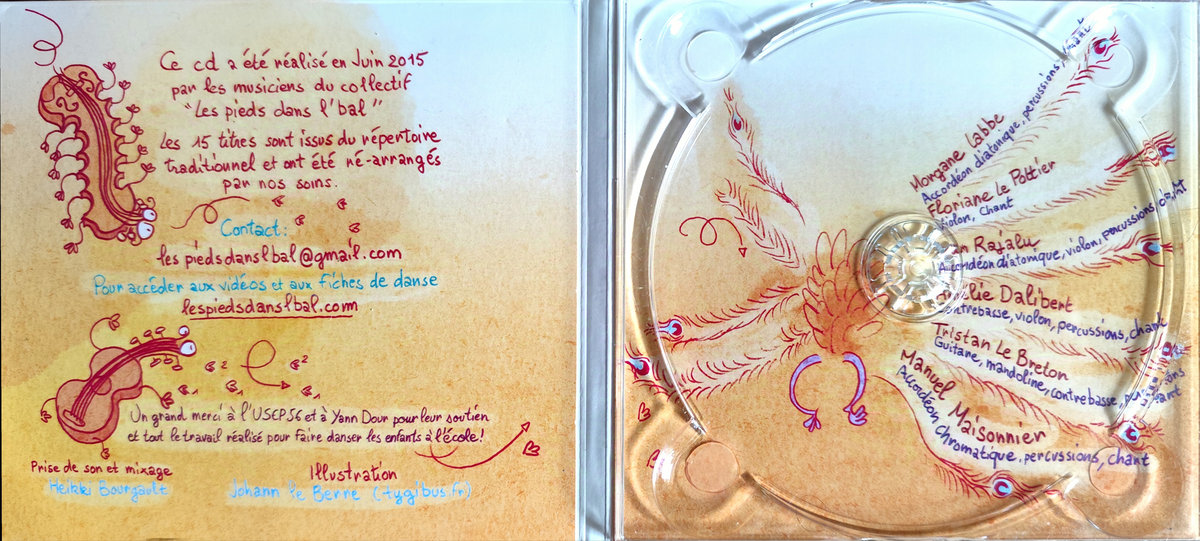 Ce cd a été réalisé en Juin 2015
par les musiciens du collectif
"Les pieds dans l'bal"
Les 15 titres sont issus du répertoire
traditionnel et ont été ré-arrangés
par nos soins.
Contact:
lespiedsdanslbal@gmail.com
Pour accéder aux vidéos et aux fiches de danse
lespiedsdanslbal.com
Un grand merci à l'USEP56 et à Yann Dour pour leur soutien
et tout le travail réalisé pour faire danser les enfants à l'école!
Prise de son et mixage
Heikki Bourgault
Illustration
Johann le Berre (tygibus.fr)
Morgane Labbe
Accordéon diatonique, percussions, chant
Floriane Le Pottier
Violon, Chant
Rajalu
Accordéon diatonique, violon, percussions, chant
Dalibert
contrebasse, violon, percussions, chant
Tristan Le Breton
Guitare, mandoline, contrebasse, percussions
chant
Manuel Maisonnier
Accordéon chromatique, percussions, chant